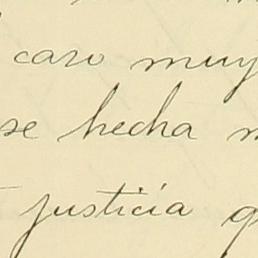 caro muy
se hecha
justicia